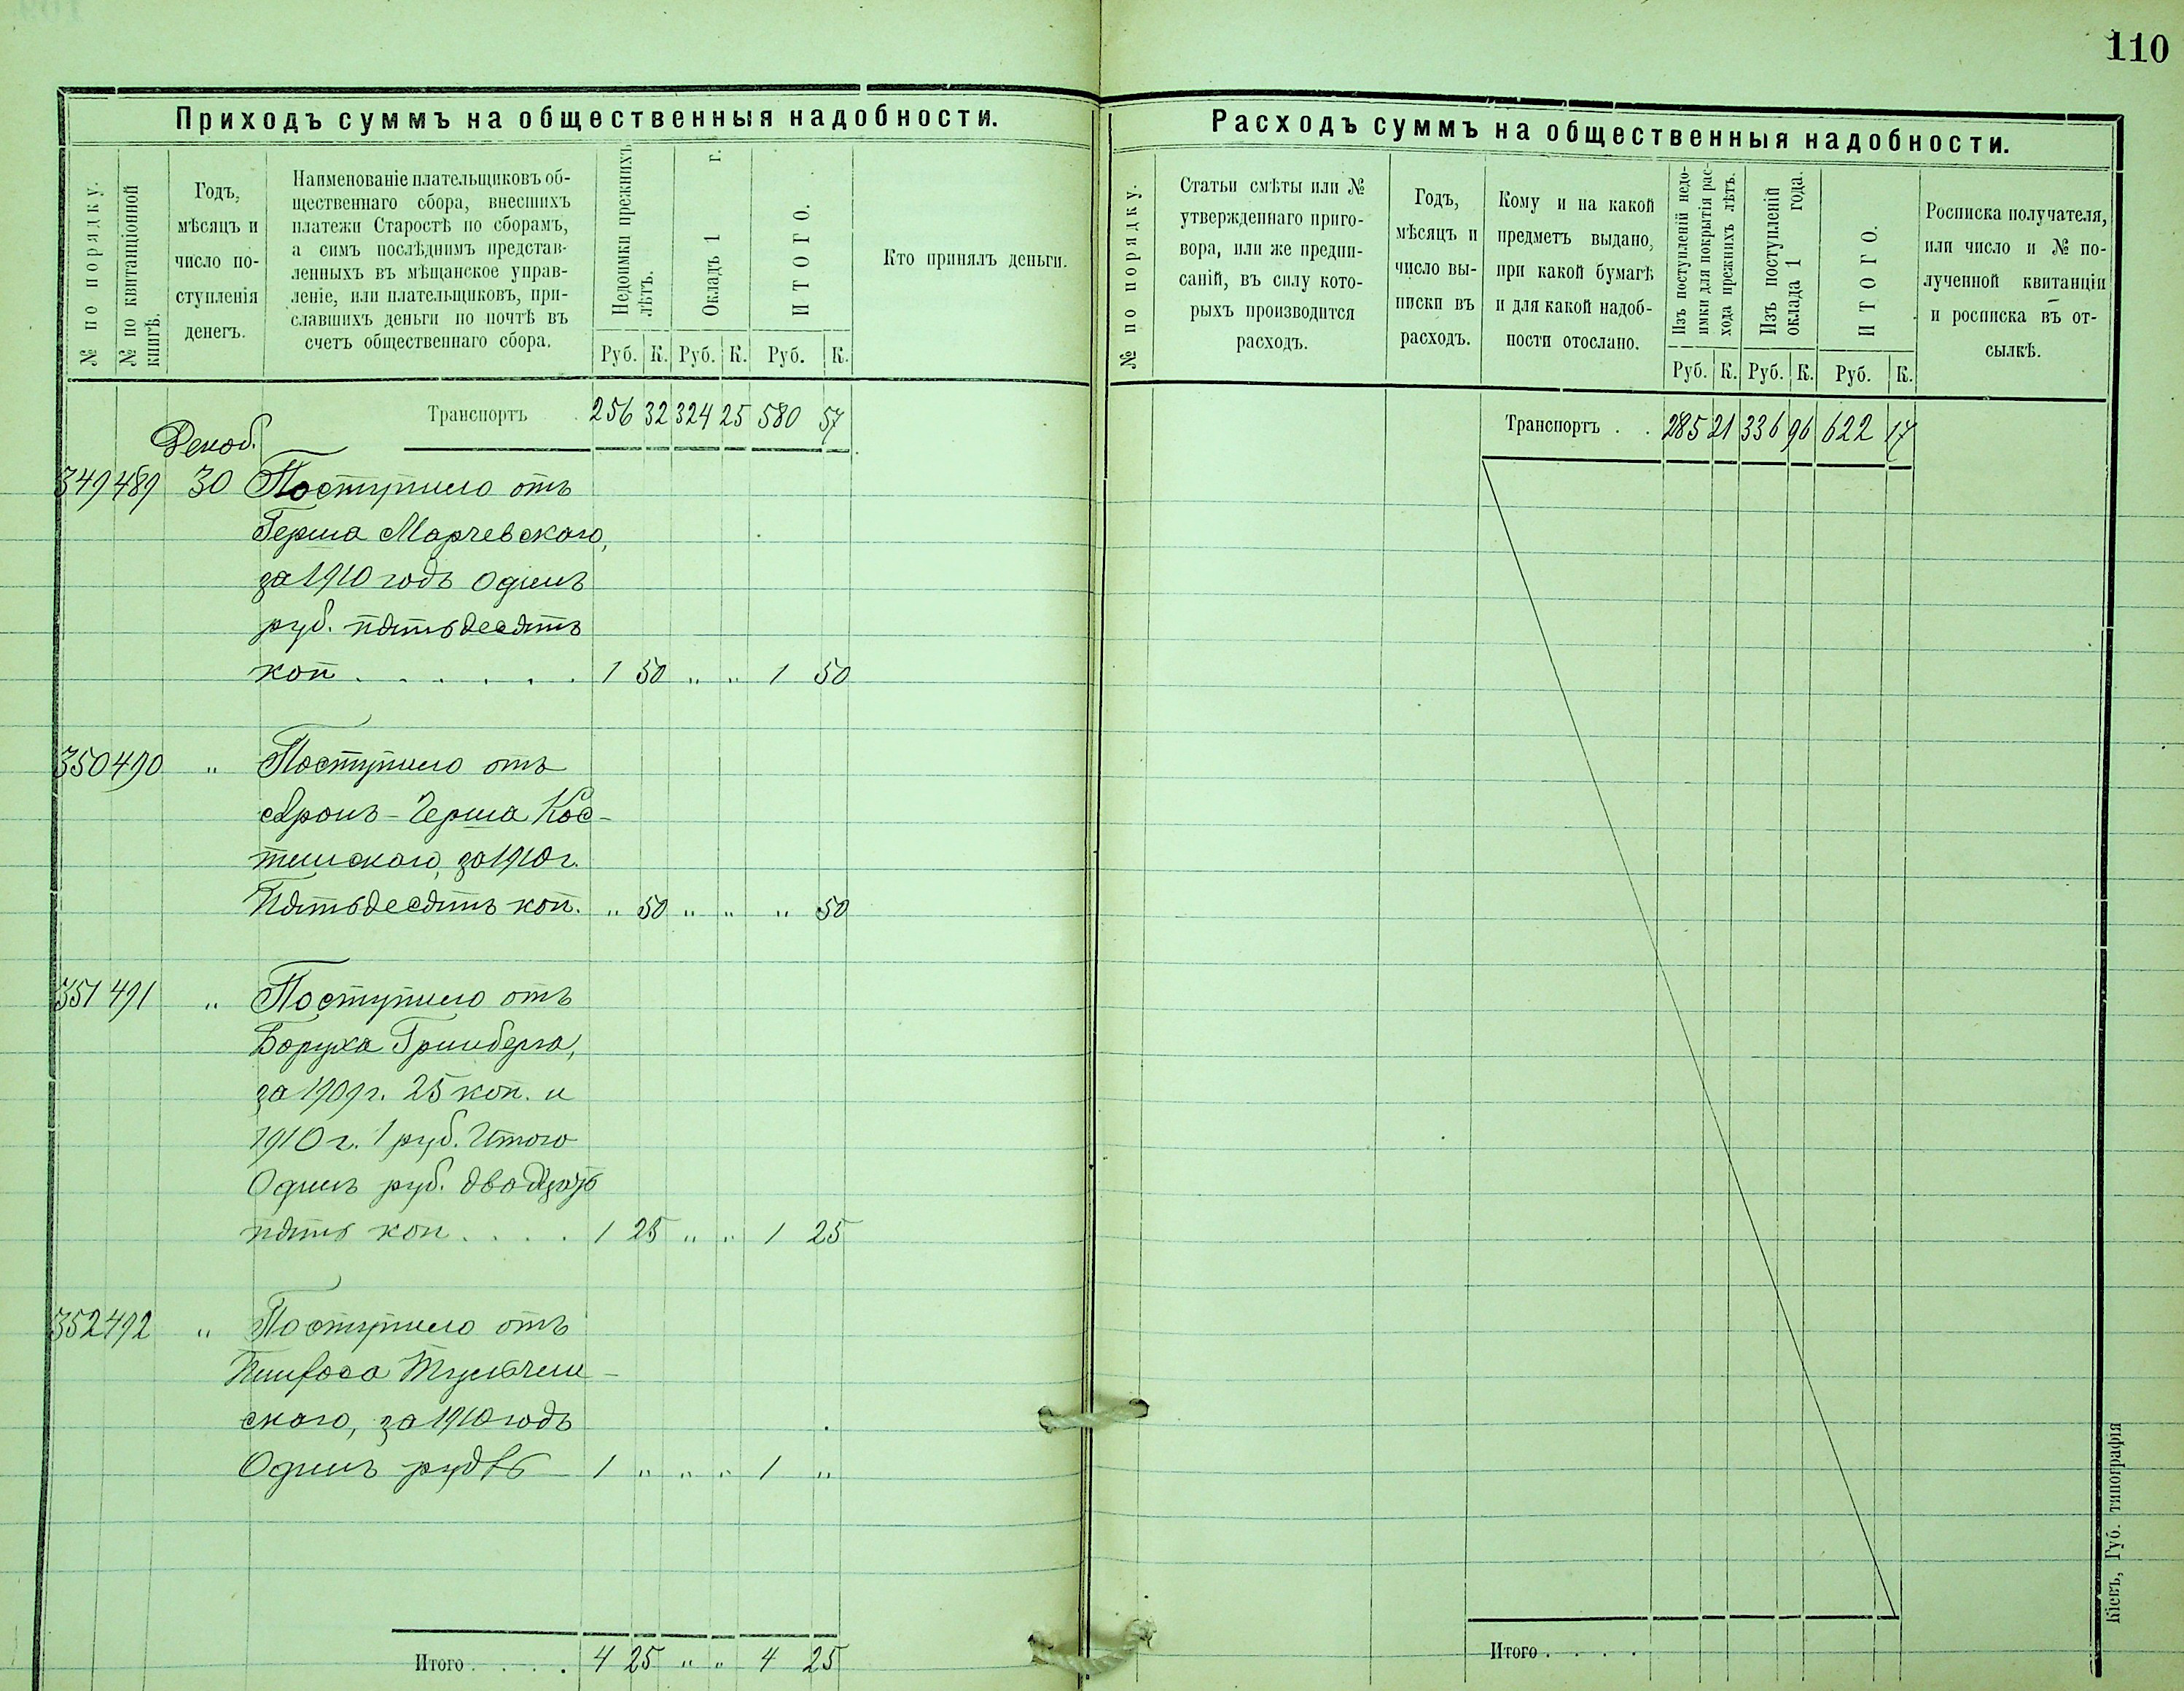 110
Приходъ суммъ на общественныя надобности.
№ по порядку.
№ по квитанціонной
книгѣ.
Годъ,
мѣсяцъ и
число по-
ступленія
денегъ.
Наименованіе плательщиковъ об-
щественнаго сбора, внесшихъ
платежи Старостѣ по сборамъ,
а симъ послѣднимъ представ-
ленныхъ въ мѣщанское управ-
леніе, или плательщиковъ, при-
славшихъ деньги по почтѣ въ
счетъ общественнаго сбора.
Недоимки прежнихъ
лѣтъ.
Окладъ 1 г.
ИТОГО.
Руб. К. Руб. К. Руб. К.
Кто принялъ деньги.
Транспортъ 256 32 324 25 580 57
Декаб.
349 489 30 Поступило отъ
Герша Марчевскаго,
за 1910 годъ Одинъ
руб. пятьдесятъ
коп . . . . . . 1 50 " " 1 50
350 490 " Поступило отъ
Аронъ-Герша Кос-
тинскаго, за 1910 г.
Пятьдесятъ коп. " 50 " " " 50
351 491 " Поступило отъ
Боруха Гринберга,
за 1909 г. 25 коп. и
1910 г. 1 руб. Итого
Одинъ руб. двадцать
пять коп . . . . 1 25 " " 1 25
352 492 " Поступило отъ
Пинхоса Тульчин-
скаго, за 1910 годъ
Одинъ рубль 1 " " " 1 "
Итого . . . . 4 25 " " 4 25
Расходъ суммъ на общественныя надобности.
№ по порядку.
Статьи смѣты или №
утвержденнаго приго-
вора, или же предпи-
саній, въ силу кото-
рыхъ производится
расходъ.
Годъ,
мѣсяцъ и
число вы-
писки въ
расходъ.
Кому и на какой
предметъ выдано,
при какой бумагѣ
и для какой надоб-
ности отослано.
Изъ поступленій недо-
имки для покрытія рас-
хода прежнихъ лѣтъ.
Изъ поступленій
оклада 1 года.
ИТОГО.
Руб. К. Руб. К. Руб. К.
Росписка получателя,
или число и № по-
лученной квитанціи
и росписка въ от-
сылкѣ.
Транспортъ . . 285 21 336 96 622 17
Итого . . . .
Кіевъ, Губ. типографія